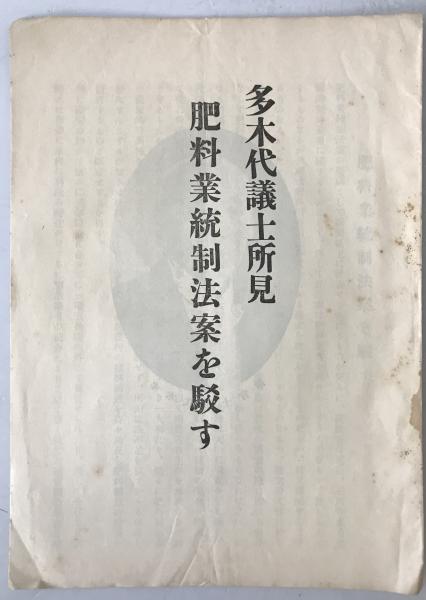 多木代議士所見
肥料業統制法案を駁す